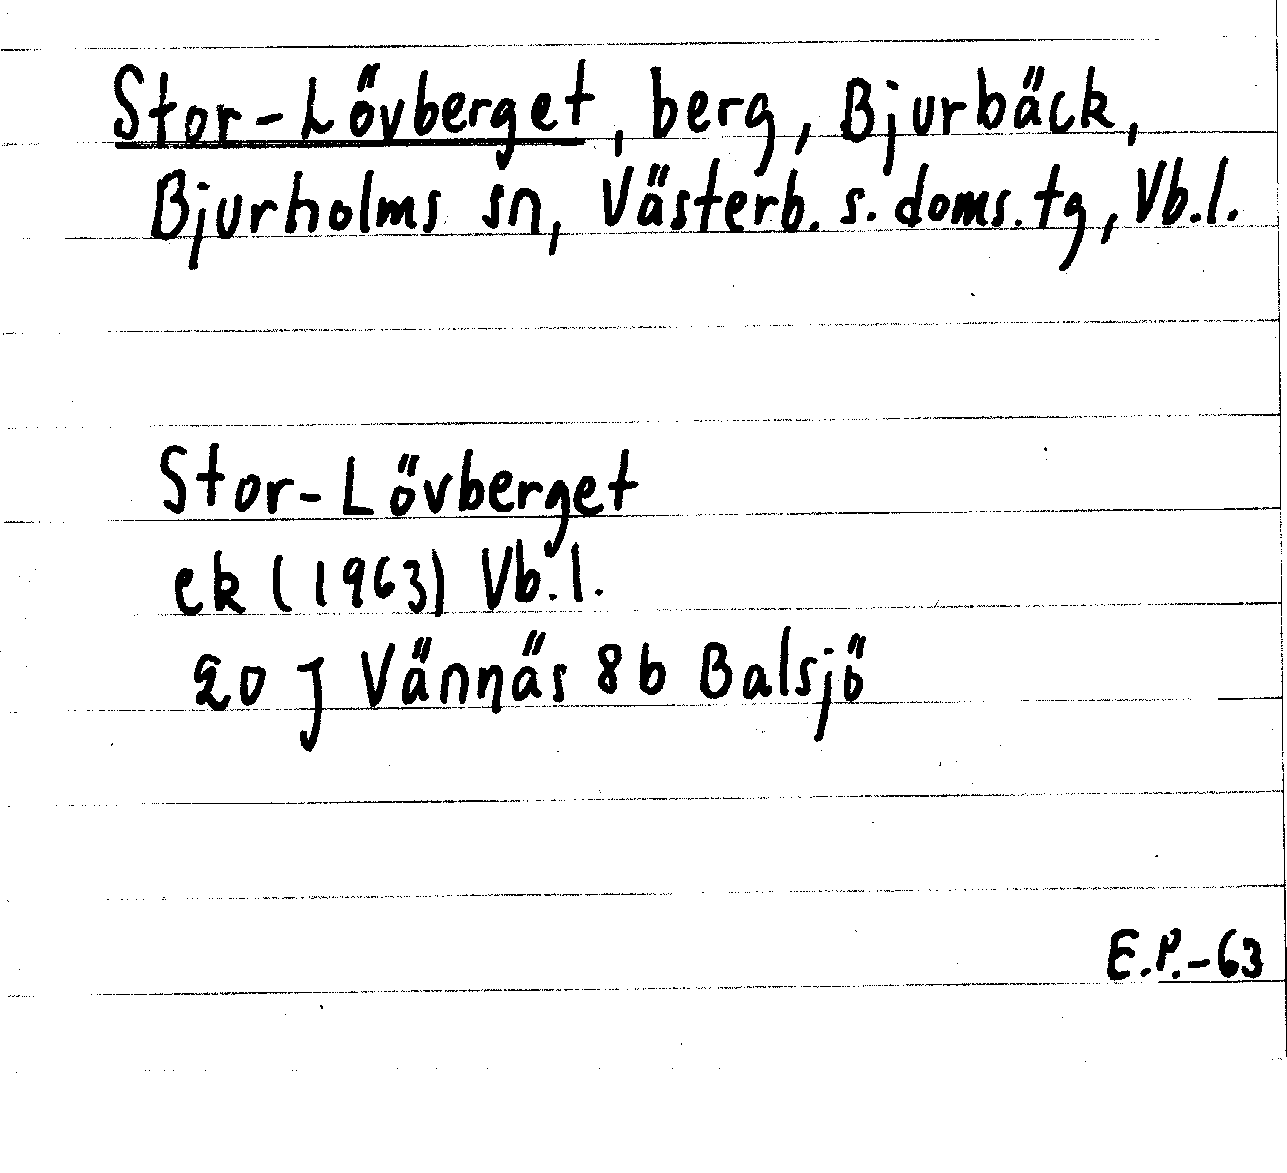 Stor-Lövberget, berg, Bjurbäck,
Bjurholms sn, Västerb. s. doms. tg, Vb.l.
Stor-Lövberget
ek (1963) Vb.l.
20 J Vännäs 8b Balsjö
E.P.-63